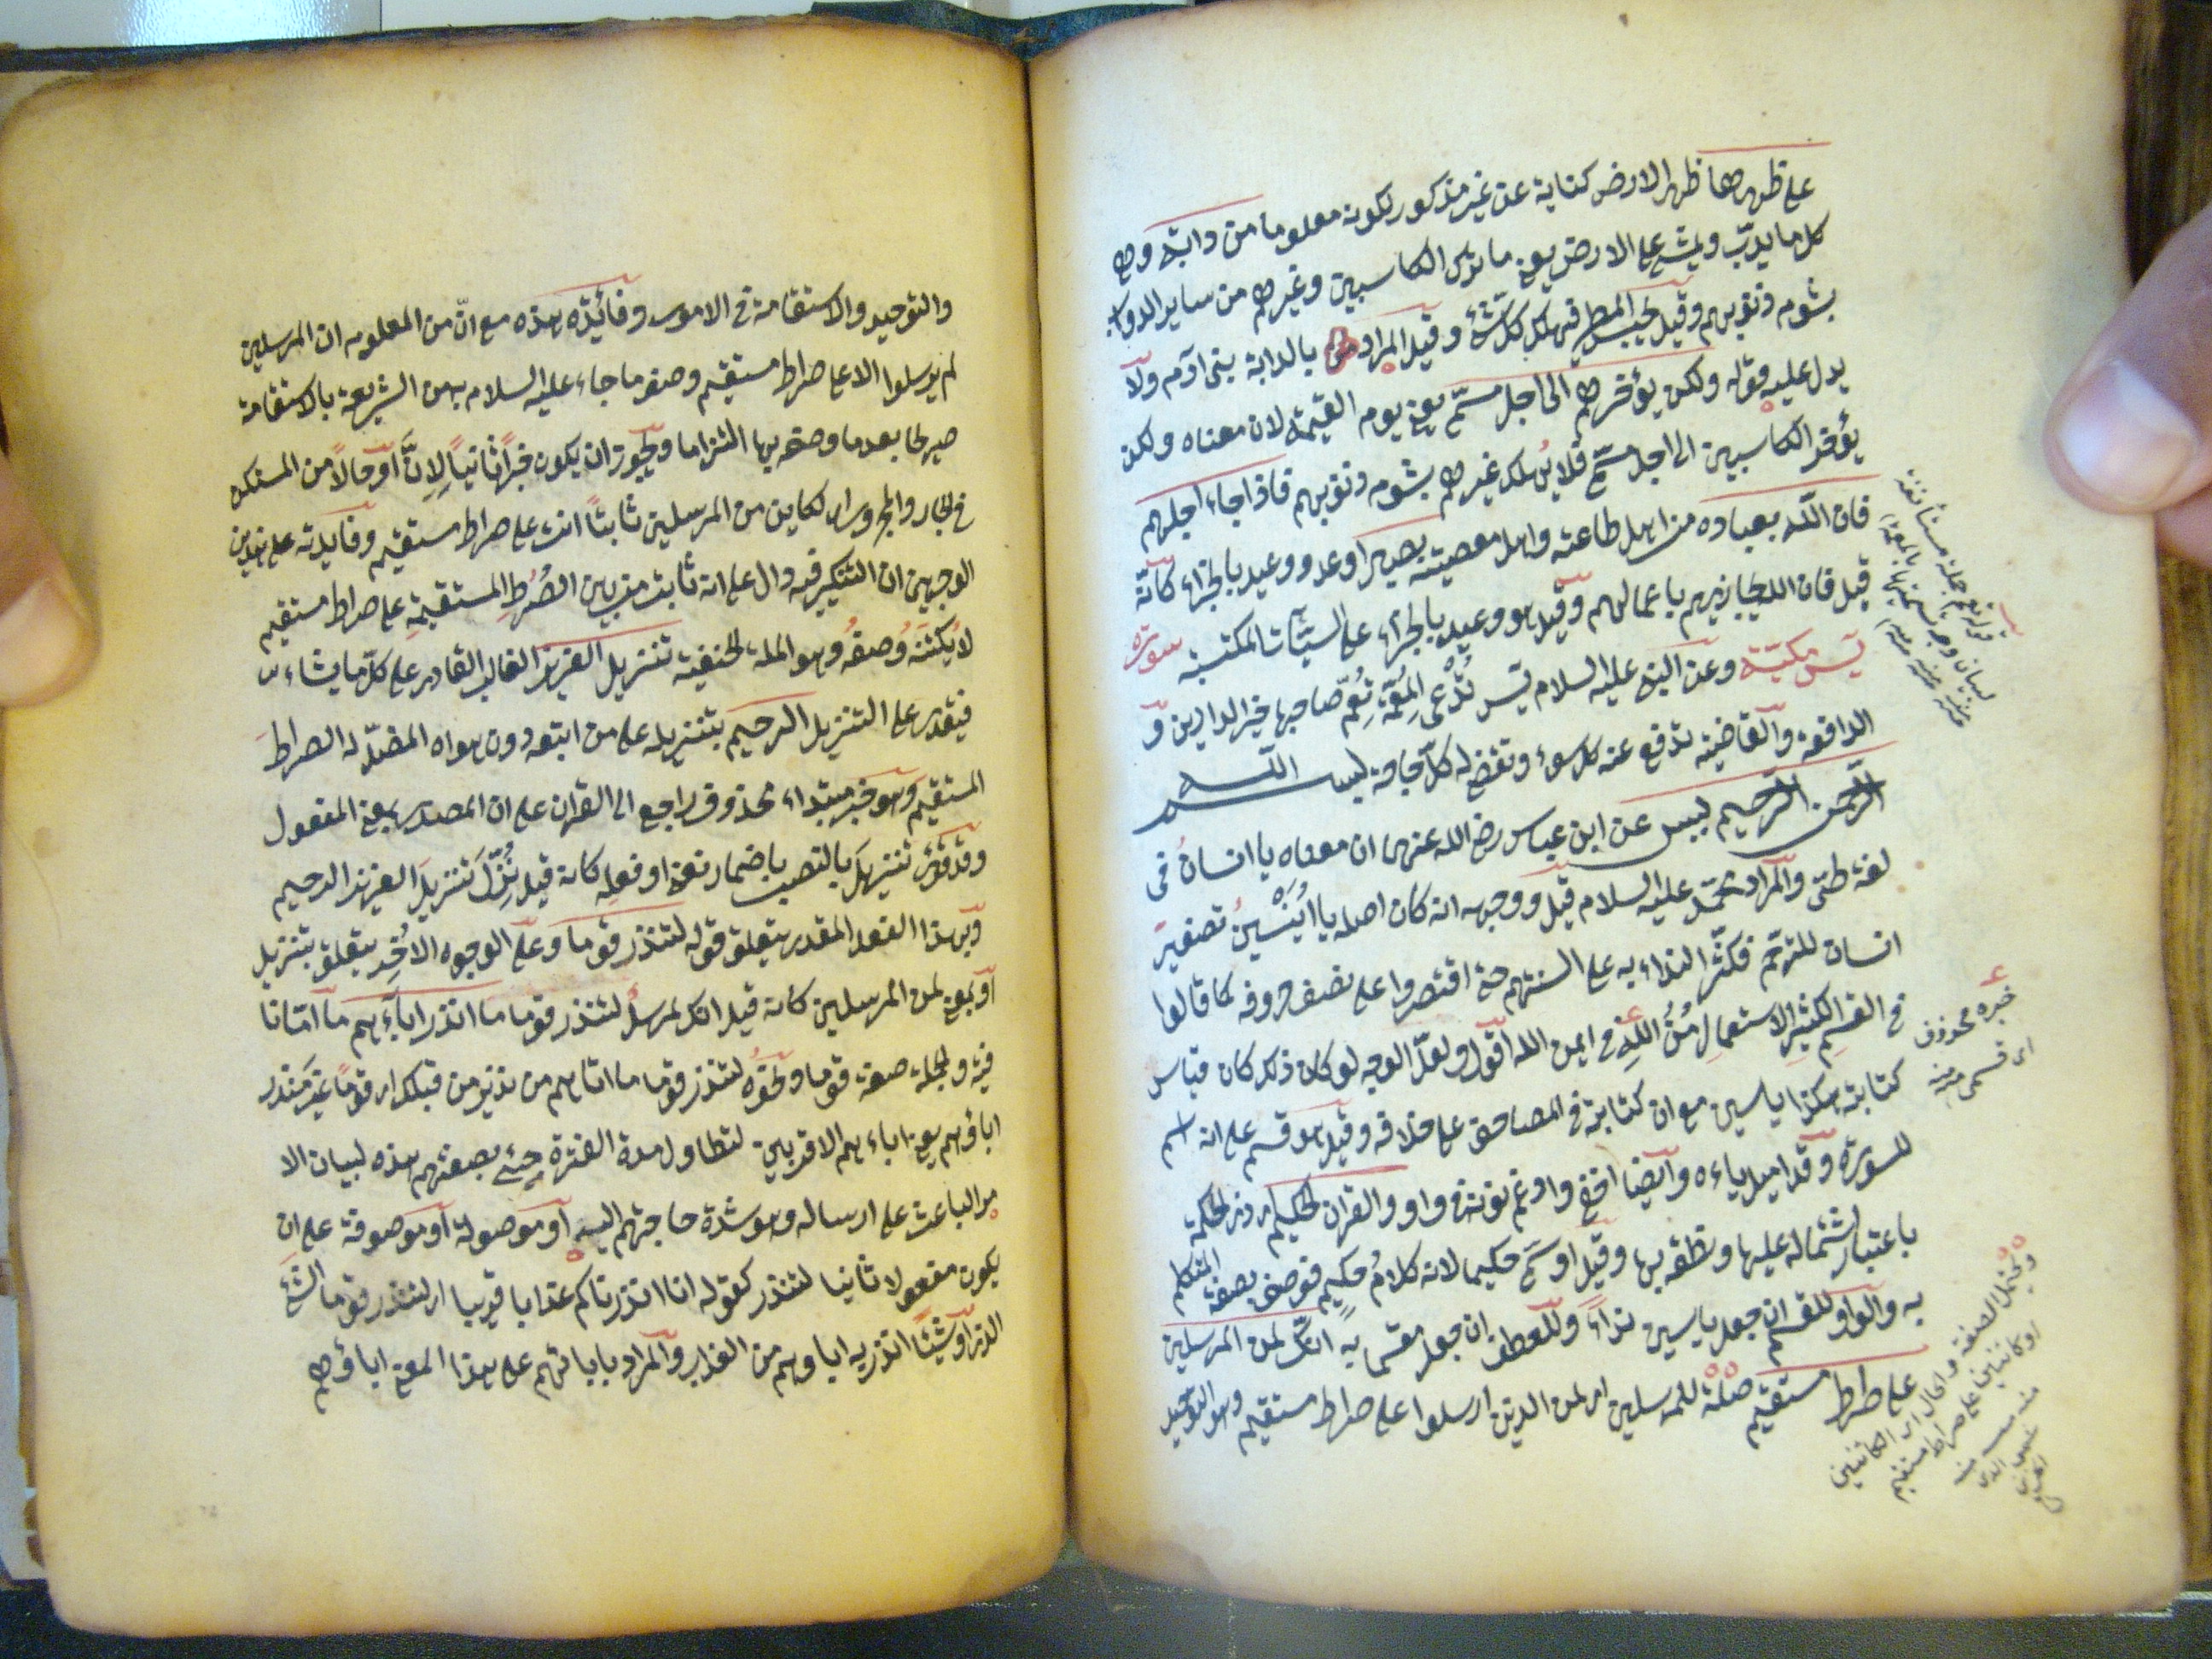 على ظهرها ظهر الارض كناية عن غير مذكور لكونه معلوما من دابة وهى
كل ما يدبّ ويمشى على الارض يعنى ما ترك الكاسبين وغيرهم من ساير الدواب
بشوم ذنوبهم وقيل يحبس المطر فيهلك كل شئ وقيل المراد بالدابة بنى آدم ولا
يدل عليه قوله ولكن يؤخرهم الى اجل مسمّى يعنى يوم القيمة لان معناه ولكن
يؤخر الكاسبين الى اجل مسمّى فلا يُهلك غيرهم بشوم ذنوبهم فاذا جاء اجلهم
فان اللّه بعباده من اهل طاعته واهل معصيته بصيرا وعد ووعيد بالجزاء كانّه
قيل فان الله يجازيهم باعمالهم وقيل هو وعيد بالجزاء على السيّآت المكتسبة سورة
يس مكيّة وعن النبى عليه السلام يس تُدْعى المُعِمَّة تُعِمّ صاحبها خير الدارين و
الدافعة والقاضية تدفع عنه كل سوء وتقضى له كلّ حاجة بسم اللّه
الرّحمن الرّحيم يس عن ابن عباس رضى الله عنهما ان معناه يا انسانُ فى
لغة طىّ والمراد محمّد عليه السلام قيل ووجهه انه كان اصله يا اُنَيْسِينُ تصغيرَ
انسان للترحّم فكثُر النداء به على السنتهم حتى اقتصروا على نصف حروفه كما قالوا
فى القسم الكثير الاستعمال مُنُ اللّهِ فى ايمن الله اقول ولعلّ الوجه لو كان ذلك كان قياس
كتابته هكذا ياسين مع ان كتابته فى المصاحف على خلافه وقيل هو قسم على انه اسم
للسورة وقد اميل ياءه وايضا اخفى وادغم نونه فى واو والقران الحكيم اى ذى الحكمة
باعتبار اشتماله عليها ونطقه بها وقيل او سمّى حكيما لانه كلامُ حكيمٍ فوصف بصفة المتكلم
به والواو للقسم ان جعل ياسين نداءً وللعطف ان جعل مقسما به انّك لمن المرسلين
على صراط مستقيم صلة للمرسلين اى لمن الذين ارسلوا على صراط مستقيم وهو التوحيد
جملة مستأنفة
خبره محذوف
اى قسمى منه
ويحتمل الصفة والحال اى الكائنين
او كائنين على صراط مستقيم
منه
والتوحيد والاستقامة فى الامور وفائدته هذه مع انّ من المعلوم ان المرسلين
لم يرسلوا الا على صراط مستقيم وصف ما جاء عليه السلام به من الشريعة بالاستقامة
صريحا بعد ما وصفه بها التزاما ويجوز ان يكون خبرًا ثانيًا لِاِنَّ او حالاً من المستكن
فى الجار والمجرور اى لكاين من المرسلين ثابتًا انت على صراط مستقيم وفايدته على هذين
الوجهين ان التنكير فيه دال على انه ثابت من بين الصُرُطِ المستقيمةِ على صراط مستقيم
لا يُكتَنَه وَصفُه وهو الملة الحنيفية تنزيل العزيز الغالب القادر على كلّ ما يشاء
فيقدر على التنزيل الرحيم بتنزيله على من اتبعه دون هواه المضلّ له الصراطَ
المستقيم وهو خبر مبتداء محذوف راجع الى القران على ان المصدر بمعنى المفعول
وقد قُرئ تنزيلَ بالنصب باضمار نعنى او فعلِه كانه قيل نُزِّلَ تنزيلَ العزيز الرحيم
وبهذا الفعل المقدر يتعلق قوله لتنذر قوما وعلى الوجوه الاُخَرِ يتعلق بتنزيل
او بمعنى لمن المرسلين كانه قيل انك لمرسلٌ لتنذر قوما ما انذر اباؤهم ما امّا نا
فية والجملة صفة قوما ونحوُه لتنذر قوما ما اتاهم من نذير من قبلك اى قومًا غيرَ مُنذَر
اباؤهم يعنى اباءهم الاقربين لتطاول مدة الفترة جئ بصفتهم هذه لبيان الا
مر الباعث على ارساله وهو شدة حاجتهم اليه او موصولة او موصوفة على ان
يكون مفعولا ثانيا لتنذر كقوله انا انذرناكم عذابا قريبا اى لتنذر قوما الشئ
الذى او شيئًا انذر به اباؤهم من العذاب والمراد باباءهم على هذا المعنى اباؤهم